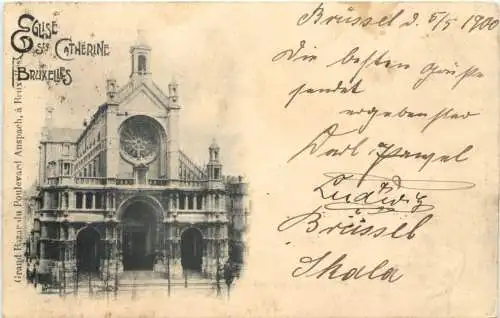 EGLISE
STE CATHÉRINE
BRUXELLES
Grand Bazar du Boulevard Anspach, à Bruxelles
Brüssel d. 5/5 1900
Die besten Grüße
sendet
ergebenster
Karl
Ludwig
Brüssel
Skala